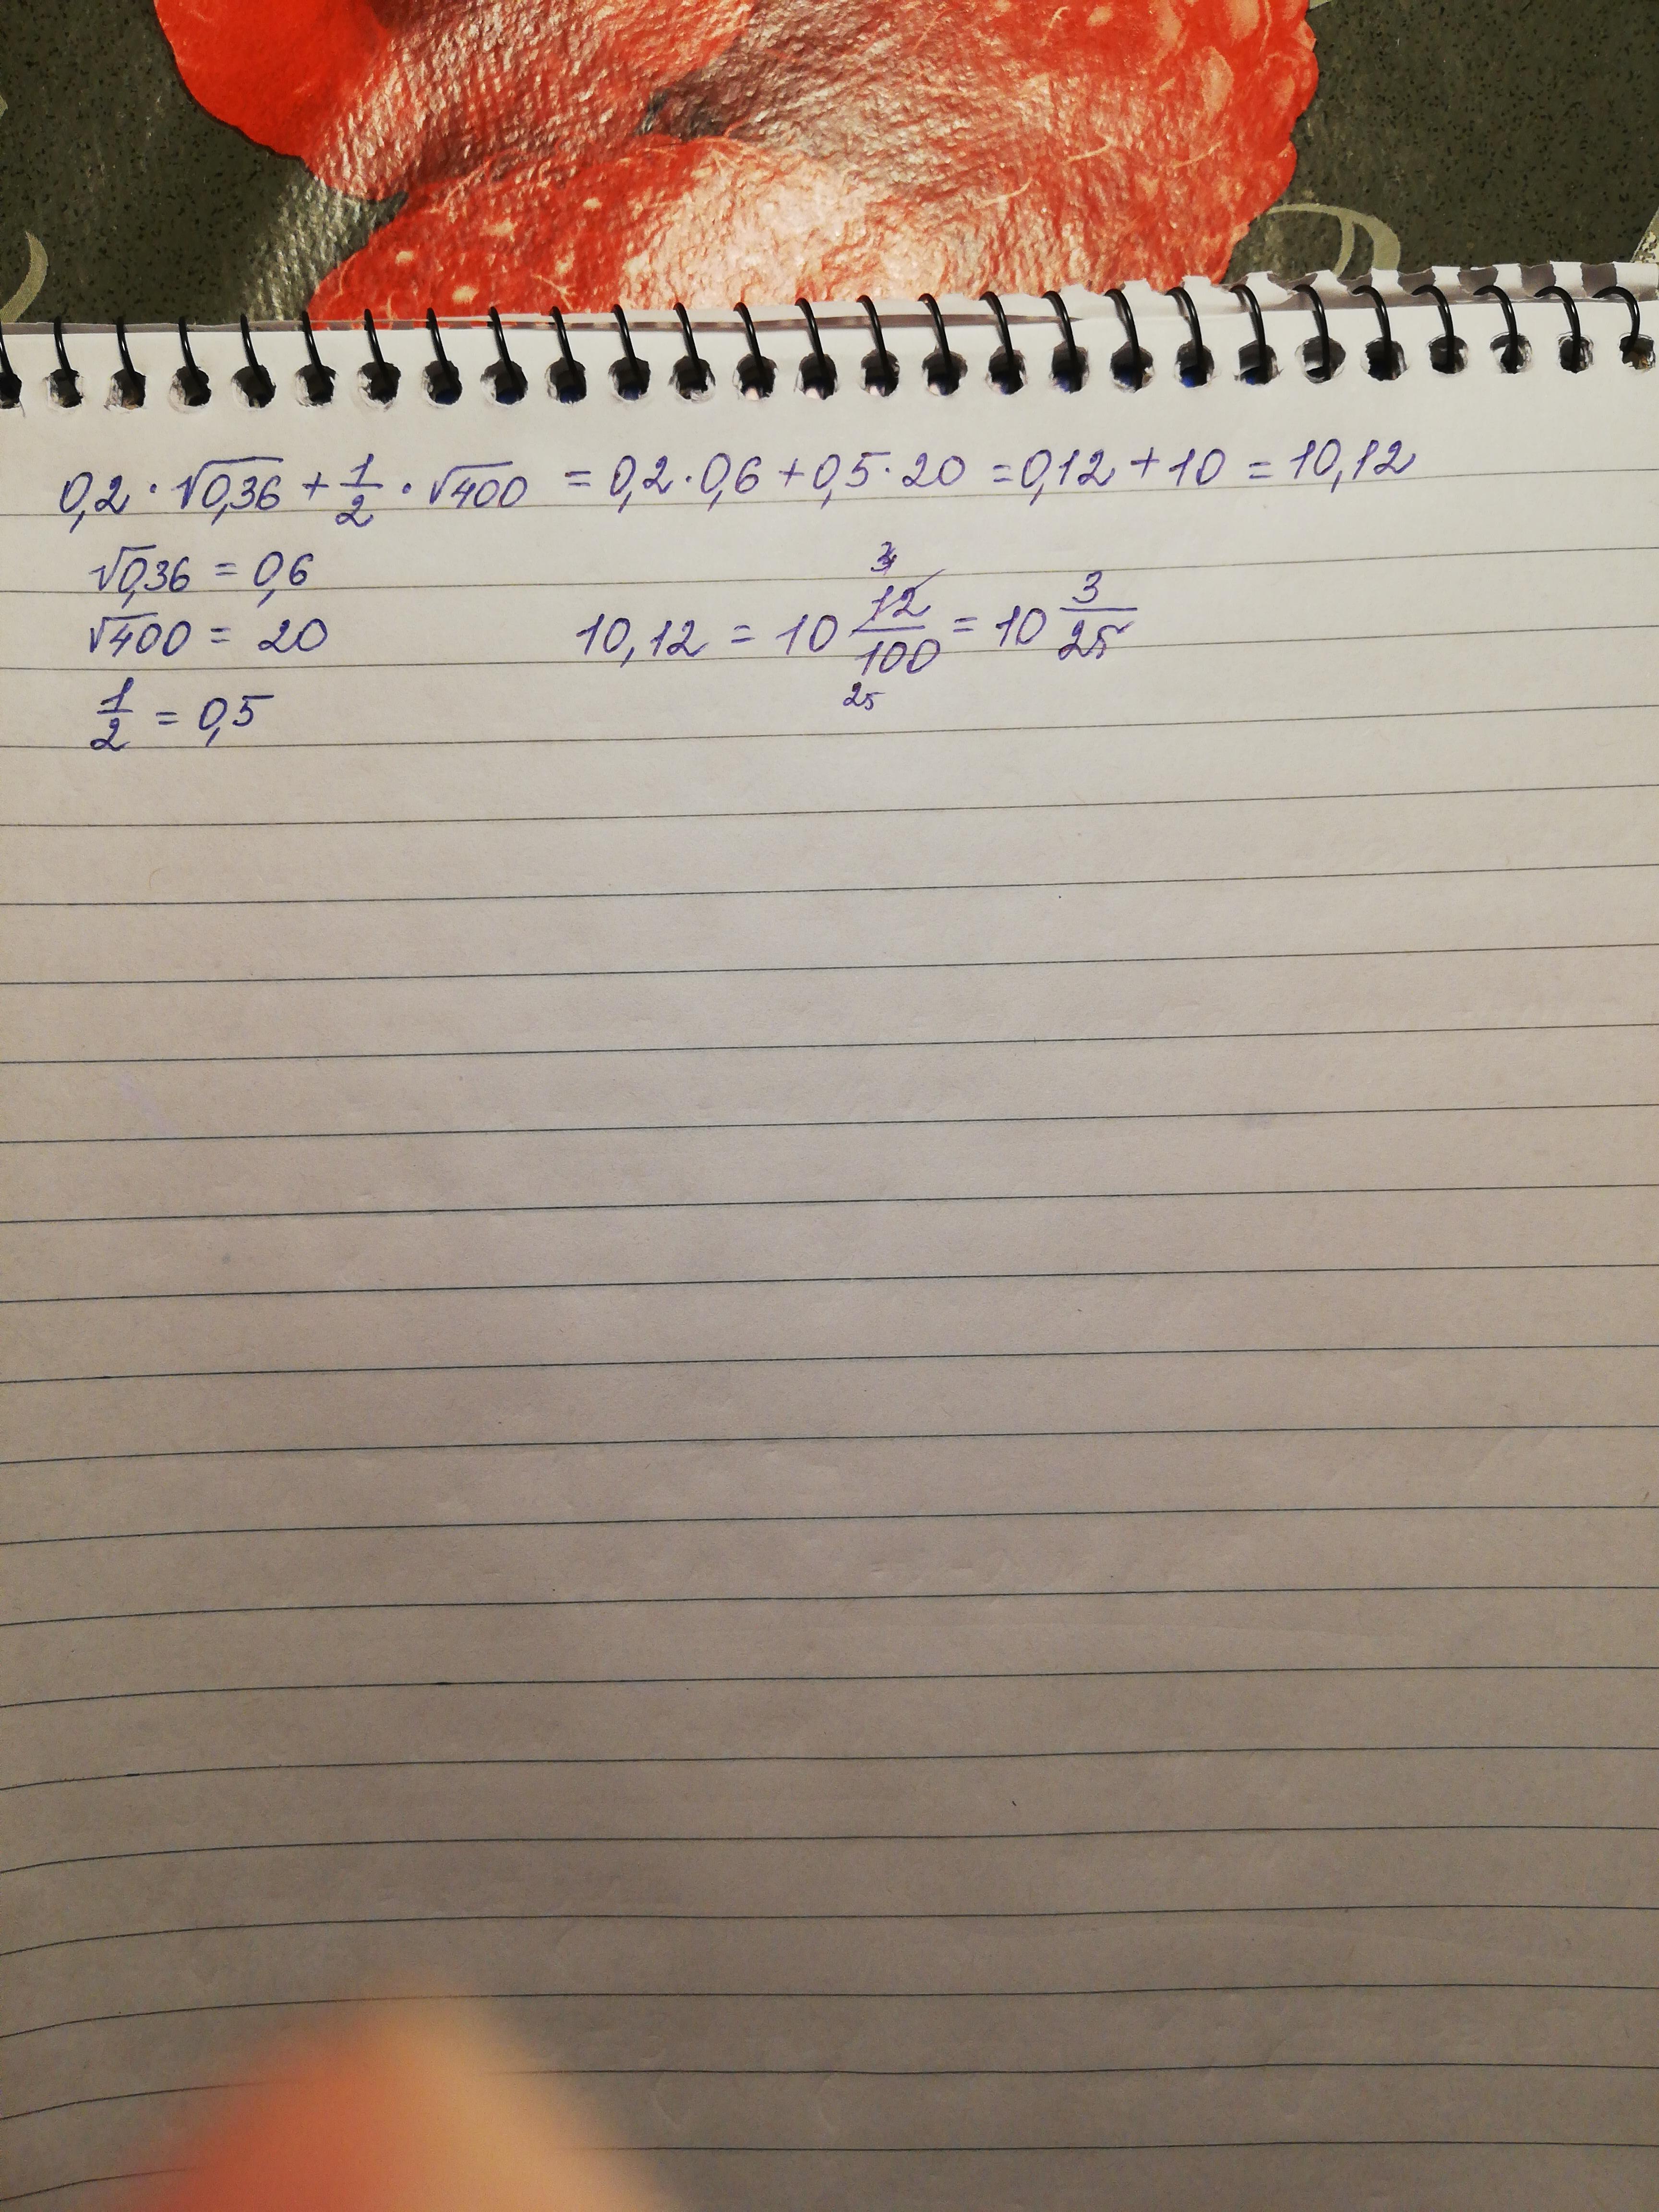 0,2 · √0,36 + 1/2 · √400 = 0,2 · 0,6 + 0,5 · 20 = 0,12 + 10 = 10,12
√0,36 = 0,6
√400 = 20
10,12 = 10 12/100 = 10 3/25
3
25
1/2 = 0,5